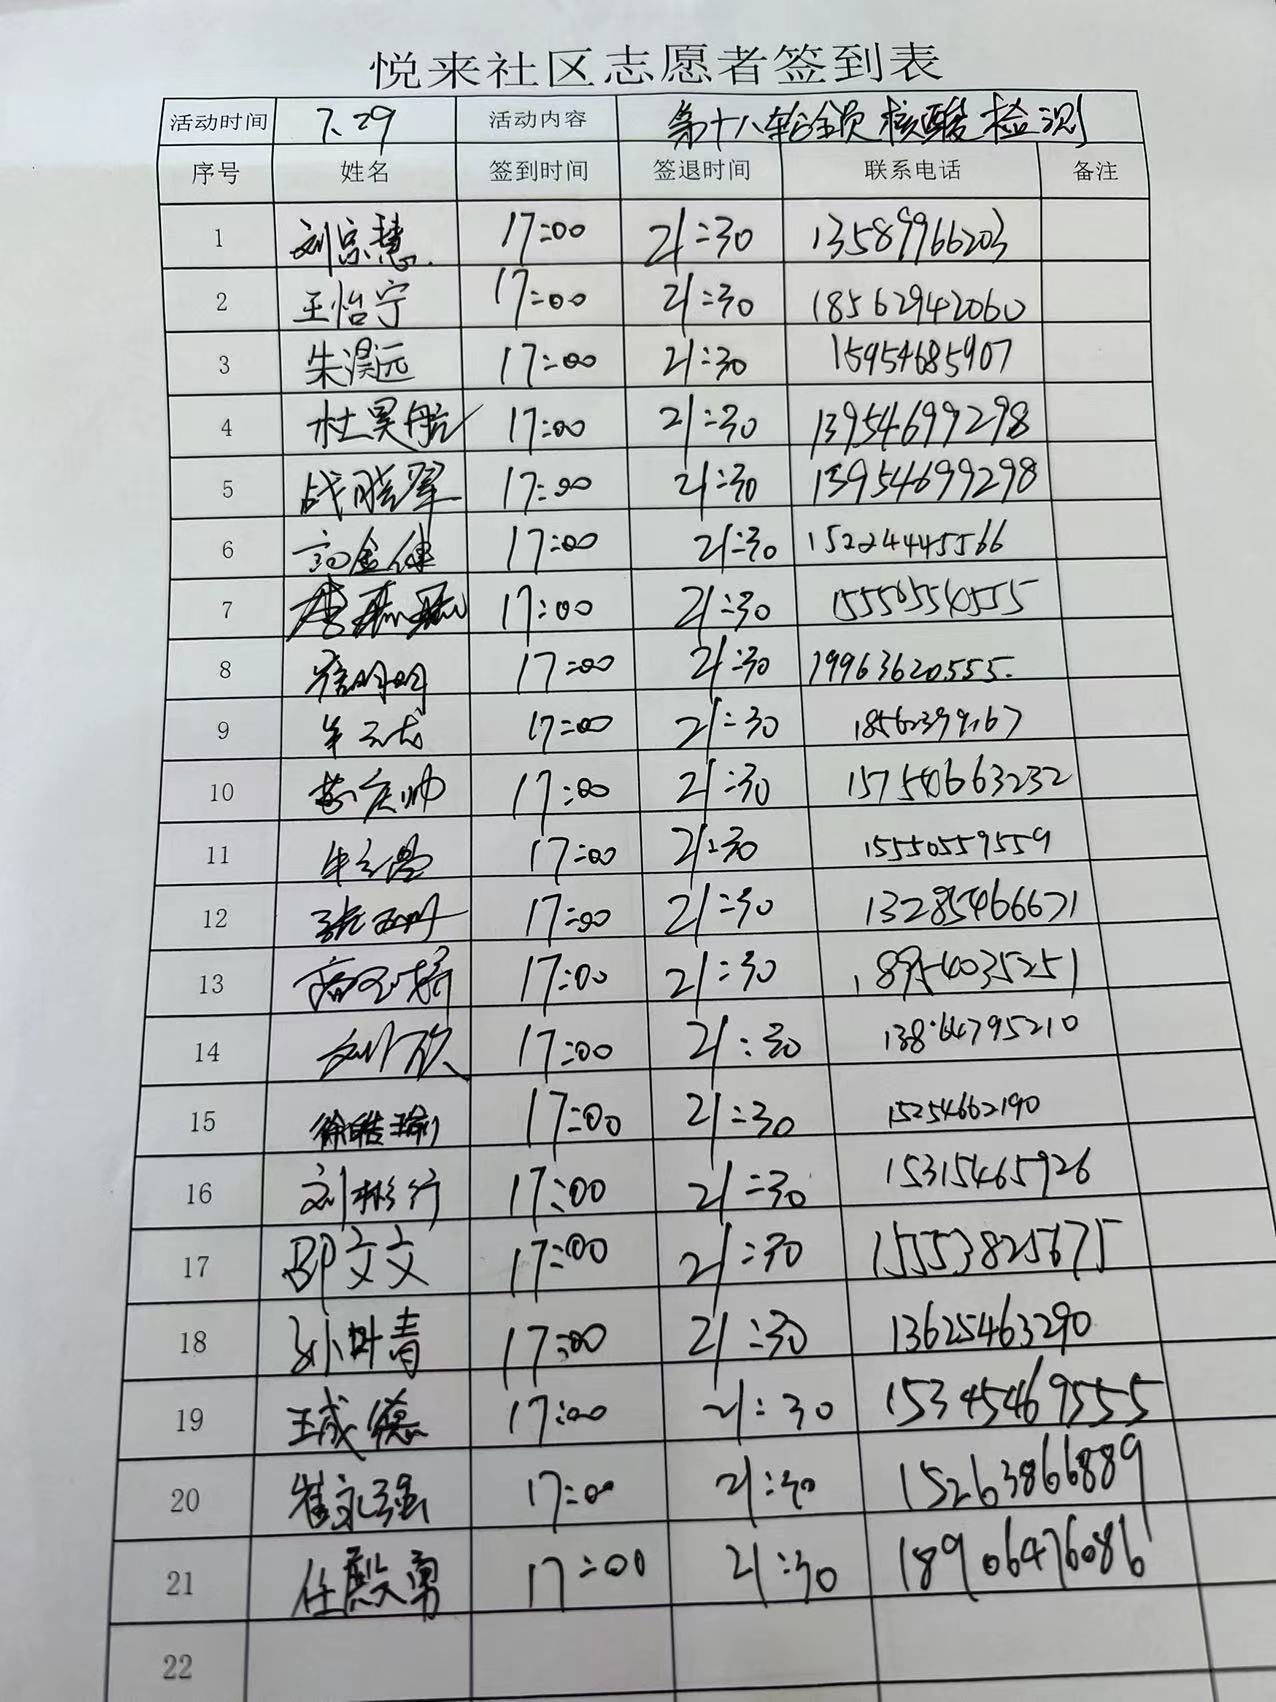 悦来社区志愿者签到表
活动时间 7.29 活动内容 第十八轮全员核酸检测
序号 姓名 签到时间 签退时间 联系电话 备注
1 刘宗慧 17:00 21:30 13589966203
2 王怡宁 17:00 21:30 18562942060
3 朱淏远 17:00 21:30 15954685907
4 杜昊航 17:00 21:30 13954699298
5 战晓翠 17:00 21:30 13954699298
6 17:00 21:30 15224445566
7 17:00 21:30 15550554555
8 17:00 21:30 19963620555
9 牟云龙 17:00 21:30
10 17:00 21:30 15754663232
11 17:00 21:30 15550559559
12 17:00 21:30 13285466671
13 17:00 21:30 18954035251
14 刘欣 17:00 21:30 13864795210
15 徐皓瑜 17:00 21:30 15254662190
16 刘彬行 17:00 21:30 15315465926
17 邵文文 17:00 21:30 15553825675
18 孙叶青 17:00 21:30 13625463290
19 王成德 17:00 21:30 15345469555
20 崔永强 17:00 21:30 15263866889
21 任殿勇 17:00 21:30 18906476086
22